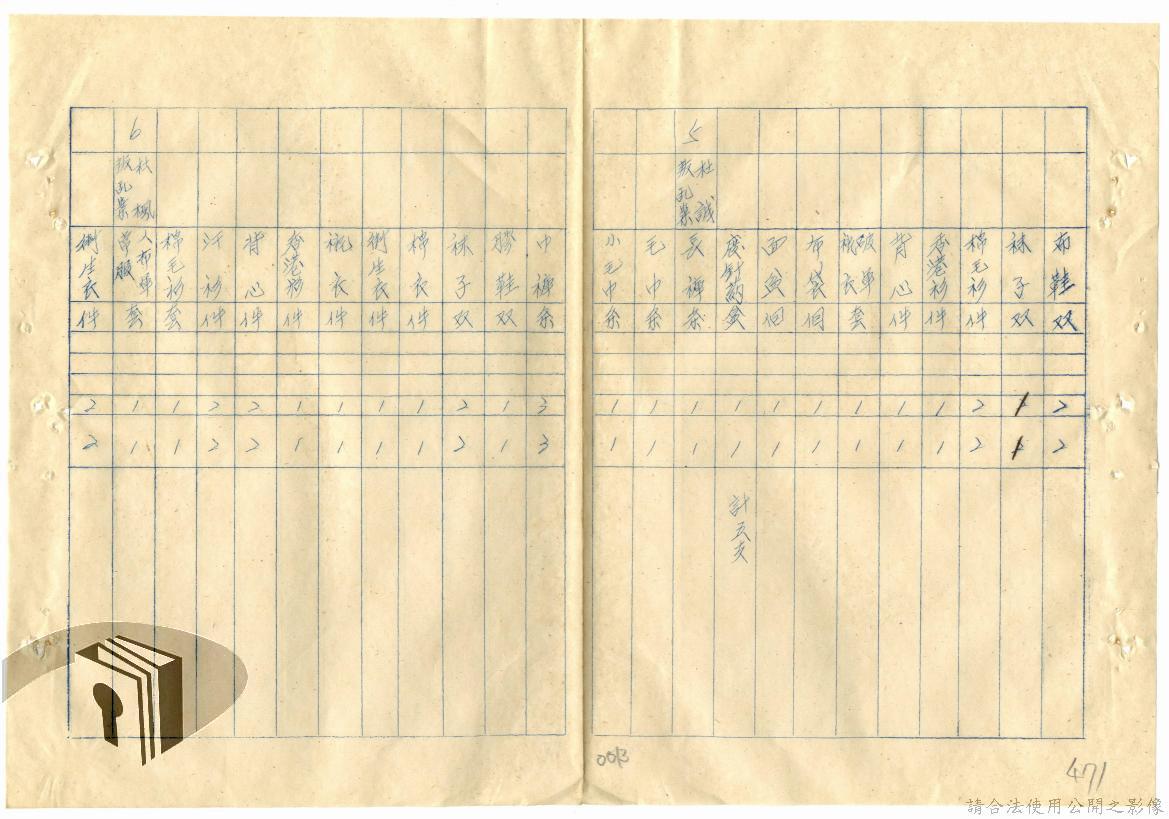 布鞋 双 2 2
袜子 双 1 1
棉毛衫 件 2 2
香港衫 件 1 1
背心 件 1 1
破單衬衣 套 1 1
布袋 個 1 1
面 個 1 1
廢針葯 1 1 計五支
5 杜誠 叛乱案 長褲 条 1 1
毛巾 条 1 1
小毛巾 条 1 1
巾褲 条 3 3
膠鞋 双 1 1
袜子 双 2 2
棉衣 件 1 1
衛生衣 件 1 1
衬衣 件 1 1
香港衫 件 1 1
背心 件 2 2
汗衫 件 2 2
棉毛衫 套 1 1
6 杜楓 叛乱案 人布單 常服 套 1 1
衛生衣 件 2 2
0013
471
請合法使用公開之影像